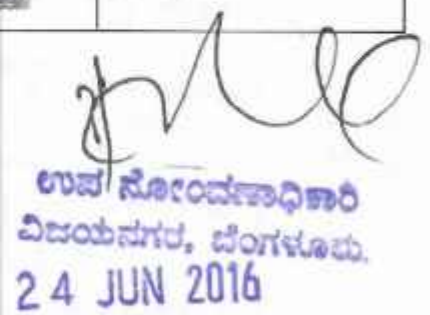 ಉಪ ನೋಂದಣಾಧಿಕಾರಿ
ವಿಜಯನಗರ, ಬೆಂಗಳೂರು.
24 JUN 2016